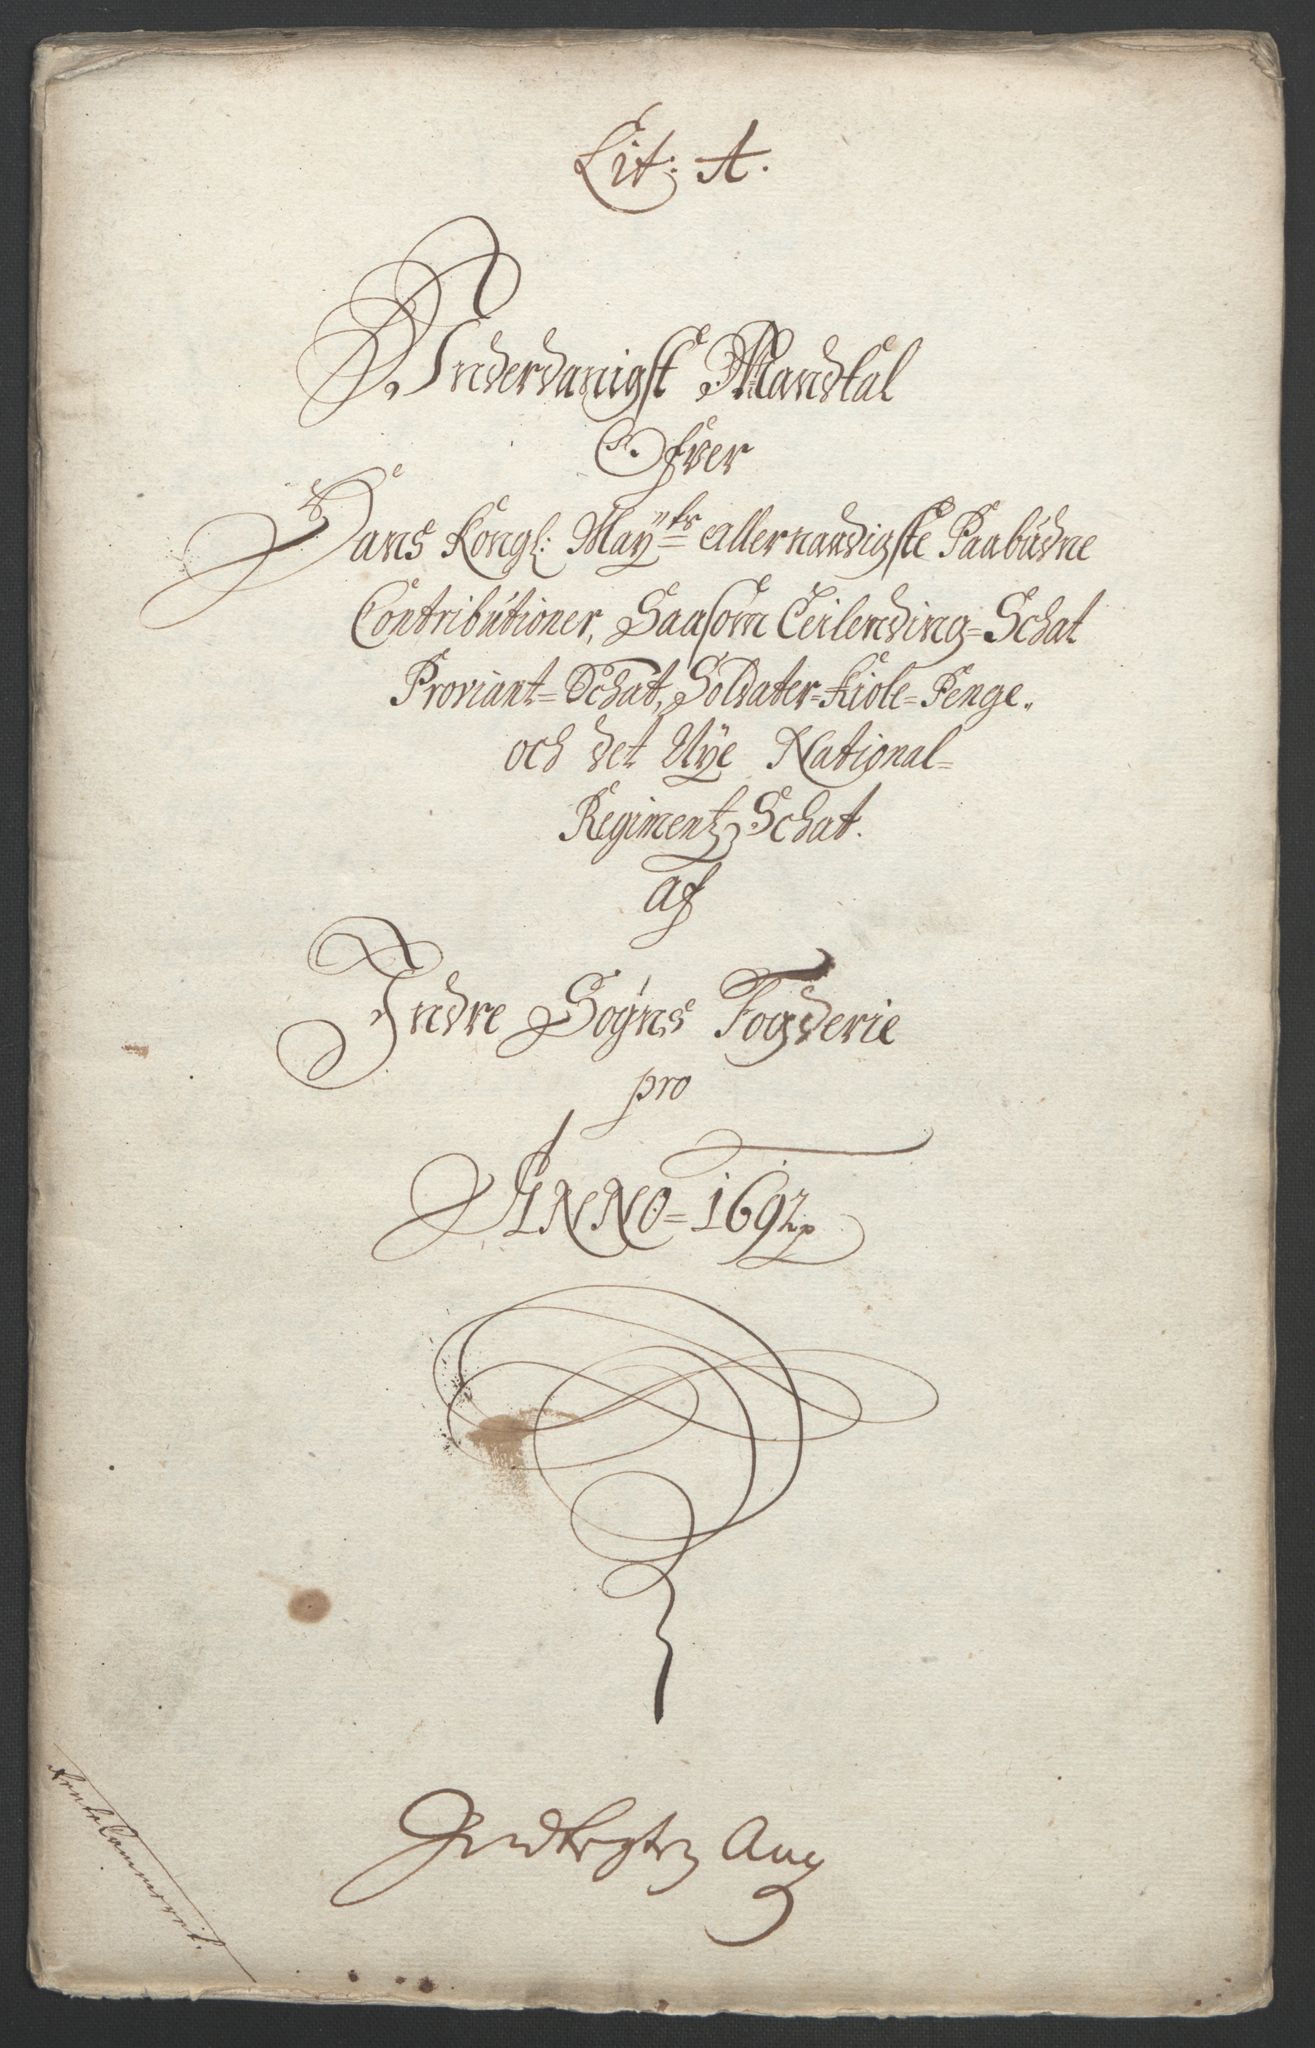 Lit: A.
Underdanigst Mandtal
Ofver
Hans Kongl: Mayts allernaadigste Paabudne
Contributioner, Saasom Leilending=Schat
Proviant=Schat, Soldater=Kiole=Penge.
och det Nye National=
Regimentz Schat.
af
Indre Sogns Fogderie
pro
ANNO=1692
Aug
RenteCammerit.